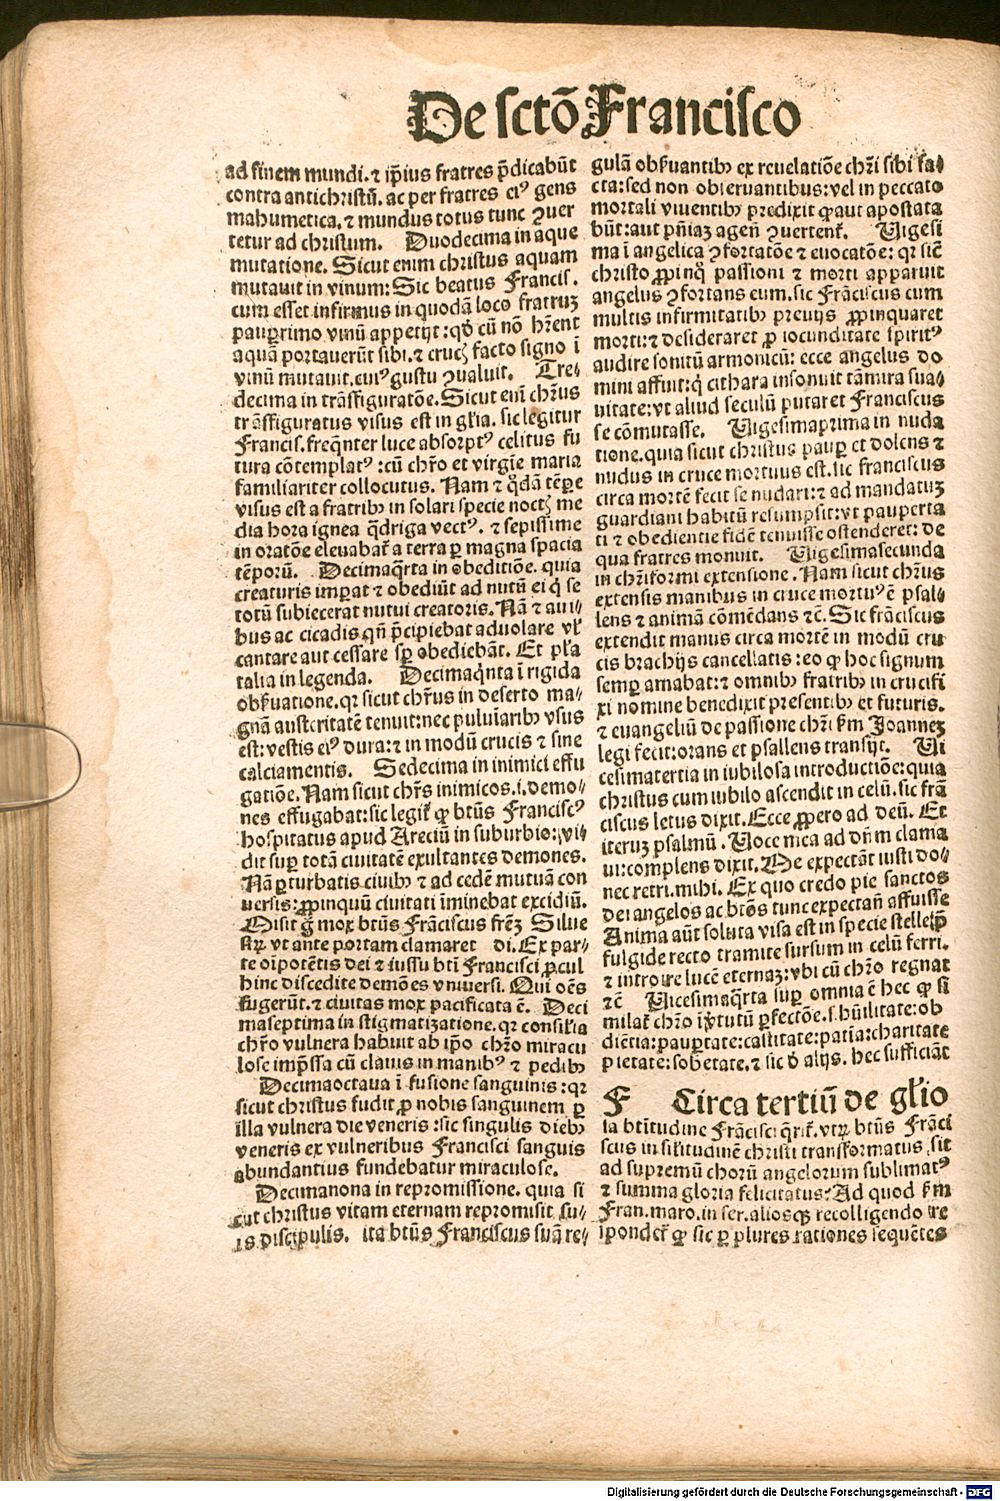 De sctō Francisco
ad finem mundi. ⁊ ip̄ius fratres p̄dicabūt
contra antichristū. ac per fratres eiꝰ gens
mahumetica. ⁊ mundus totus tunc ꝯuer
tetur ad christum. Duodecima in aque
mutatione. Sicut enim christus aquam
mutauit in vinum: Sic beatus Francis.
cum esset infirmus in quodā loco fratruꝫ
pauꝑrimo vinū appetijt: qđ cū nō hr̄ent
aquā portauerūt sibi. ⁊ crucꝭ facto signo ī
vinū mutauit. cuiꝰ gustu ꝯualuit. Tre⸗
decima in trāsfiguratōe. Sicut enī chr̄us
trāsfiguratus visus est in gl̄ia. sic legitur
Francis. freq̄nter luce absorptꝰ celitus fu
tura cōtemplatꝰ: cū chr̄o et virgīe maria
familiariter collocutus. Nam ⁊ q̊dā tēꝑe
visus est a fratribꝫ in solari specie noctꝭ me
dia hora ignea q̄driga vectꝰ. ⁊ sepissime
in oratōe eleuabat̄ a terra ꝑ magna spacia
tēporū. Decimaq̄rta in obeditiōe. quia
creaturis imꝑat ⁊ obediūt ad nutū ei q̇ se
totū subiecerat nutui creatoris. Nā ⁊ aui⸗
bus ac cicadis qn̄ p̄cipiebat aduolare vl̓
cantare aut cessare sꝑ obediebāt. Et pl̄a
talia in legenda. Decimaq̇nta ī rigida
obẜuatione. qꝛ sicut chr̄us in deserto ma⸗
gnā austeritatē tenuit: nec puluiaribꝫ vsus
est: vestis eiꝰ dura: ⁊ in modū crucis ⁊ sine
calciamentis. Sedecima in inimici effu
gatiōe. Nam sicut chr̄s inimicos. i. demo⸗
nes effugabat: sic legit̄ ꝙ btūs Franciscꝰ
hospitatus apud Areciū in suburbio: vi⸗
dit suꝑ totā ciuitatē exultantes demones.
Nā ꝑturbatis ciuibꝫ ⁊ ad cedē mutuā con
uersis: ꝓpinquū ciuitati īminebat excidiū.
Misit g̊ mox btūs Frāciscus frēꝫ Silue
strꝝ vt ante portam clamaret di. Ex par⸗
te oīpotētis dei ⁊ iussu btī Francisci ꝓcul
hinc discedite demōes vniuersi. Qui oēs
fugerūt. ⁊ ciuitas mox pacificata ē. Deci
maseptima in stigmatizatione. qꝛ consil̓ia
chr̄o vulnera habuit ab ip̄o chr̄o miracu
lose imp̄ssa cū clauis in manibꝰ ⁊ pedibꝫ
Decimaoctaua ī fusione sanguinis: qꝛ
sicut christus fudit ꝓ nobis sanguinem ꝑ
illa vulnera die veneris: sic singulis diebꝫ
veneris ex vulneribus Francisci sanguis
abundantius fundebatur miraculose.
Decimanona in repromissione. quia si
cut christus vitam eternam repromisit su⸗
is discipulis. ita btūs Franciscus suā re⸗
gulā obẜuantibꝫ ex reuelatiōe chr̄i sibi fa⸗
cta: sed non obseruantibus: vel in peccato
mortali viuentibꝫ predixit ꝙ aut apostata
būt: aut pn̄iaꝫ agen̄ ꝯuertent̄. Uigesi
ma ī angelica ꝯfortatōe ⁊ euocatōe: qꝛ sic̄
christo ꝓpinq̊ passioni ⁊ morti apparuit
angelus ꝯfortans eum. sic Frāciscus cum
multis infirmitatibꝫ preuijs ꝓpinquaret
morti: ⁊ desideraret ꝓ iocunditate spiritꝰ
audire sonitū armonicū: ecce angelus do
mini affuit: q̇ cithara insonuit tā mira sua⸗
uitate: vt aliud seculū putaret Franciscus
se cōmutasse. Uigesimaprima in nuda
tione. quia sicut christus pauꝑ et dolens ⁊
nudus in cruce mortuus est. sic franciscus
circa mortē fecit se nudari: ⁊ ad mandatuꝫ
guardiani habitū resumpsit: vt pauperta
ti ⁊ obedientie fidē tenuisse ostenderet: de
qua fratres monuit. Uigesimasecunda
in chr̄iformi extensione. Nam sicut chr̄us
extensis manibus in cruce mortuꝰ ē psal⸗
lens ⁊ animā cōmēdans ⁊c̄. Sic frāciscus
extendit manus circa mortē in modū cru
cis brachijs cancellatis: eo ꝙ hoc signum
semꝑ amabat: ⁊ omnibꝫ fratribꝫ in crucifi
xi nomine benedixit presentibꝫ et futuris.
⁊ euangeliū de passione chr̄i ẜm Joannez
legi fecit: orans et psallens transijt. Ui
cesimatertia in iubilosa introductiōe: quia
christus cum iubilo ascendit in celū. sic frā
ciscus letus dixit. Ecce ꝓpero ad deū. Et
iteruꝫ psalmū. Uoce mea ad dn̄m clama
ui: complens dixit. Me expectāt iusti do⸗
nec retri. mihi. Ex quo credo pie sanctos
dei angelos ac btōs tunc expectan̄ affuisse
Anima aūt soluta visa est in specie stelle p̄
fulgide recto tramite sursum in celū ferri.
⁊ introire lucē eternaꝫ: vbi cū chr̄o regnat
⁊c̄ Uicesimaq̄rta suꝑ omnia ē hec ꝙ si
milat̄ chr̄o ī ꝟtutū ꝑfectōe. s. hūilitate: ob
diētia: pauꝑtate: castitate: patīa: charitate
pietate: sobrietate. ⁊ sic ð alijs. hec sufficiāt
F Circa tertiū de gl̓io
sa btītudine Frācisci q̄rit̄. vtꝝ btūs Frāci
scus in sil̓itudinē christi transformatus, sit
ad supremū chorū angelorum sublimatꝰ
⁊ summa gloria felicitatus? Ad quod ẜm
Fran. maro. in ser. aliosqꝫ recolligendo re
spondet̄ ꝙ sic ꝑ plures rationes sequētes
Digitalisierung gefördert durch die Deutsche Forschungsgemeinschaft - DFG